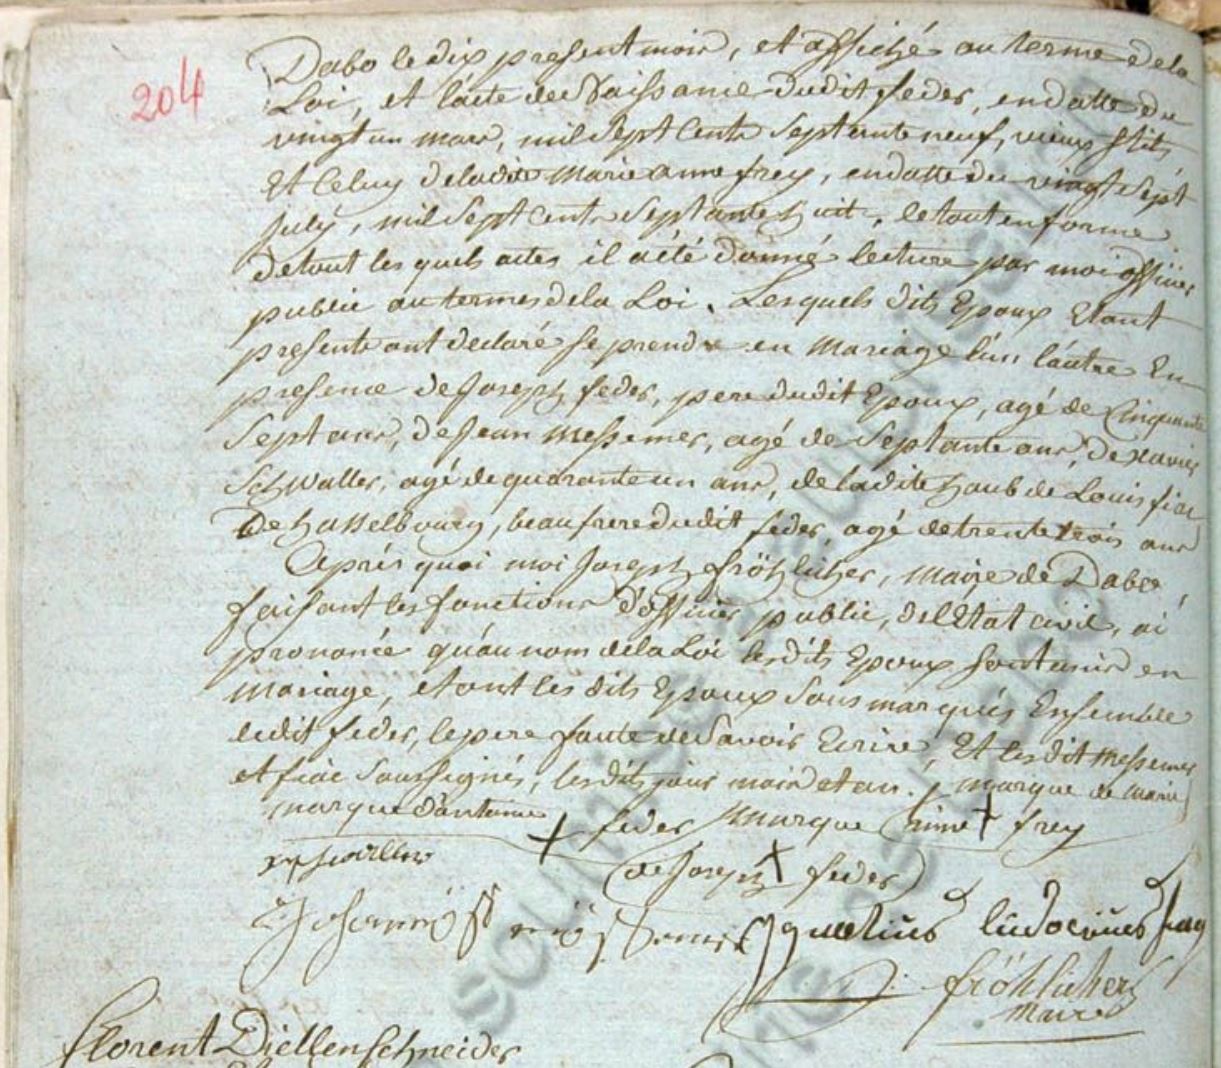 204
Dabo le dix present mois, et affiché au terme de la
Loi, et l'acte de Naissance dudit feder, en datte du
vingt un mars, mil sept cents septante neuf, vieux stil,
Et Celuy de ladite Marie anne frey, en datte du vingt sept
july, mil sept cents septante huit, le tout en forme
de tout les quels actes il a été donné lecture par moi officier
public au termes de la Loi. Lesquels dits Epoux Etant
present ont declaré se prendre en Mariage l'un l'autre En
presence de Joseph feder, pere dudit Epoux, agé de Cinquante
Sept ans, de Jean Messemer, agé de Septante ans, de xavier
Schwaller, agé de quarante un ans, de ladite haub de Louis fiac
de hasselbourg, beaufrere dudit feder, agé de trente trois ans
Après quoi moi Joseph fröhlicher, Maire de Dabo
faisant les fonctions d'officier public, de l'Etat civil, ai
prononcé qu'au nom de la Loi les dits Epoux sont unis en
Mariage, et ont les dits Epoux Sousmarqués Ensemble
ledit feder, le pere faute de Savoir Ecrire, Et les dit Messemer
et fiac Soussignés, les dits jour mois et an. marque de Marie
marque d'antoine + feder Marque anne + frey
de Joseph + feder
ludovicus
fröhlicher
Maire
Florent Diellenschneider